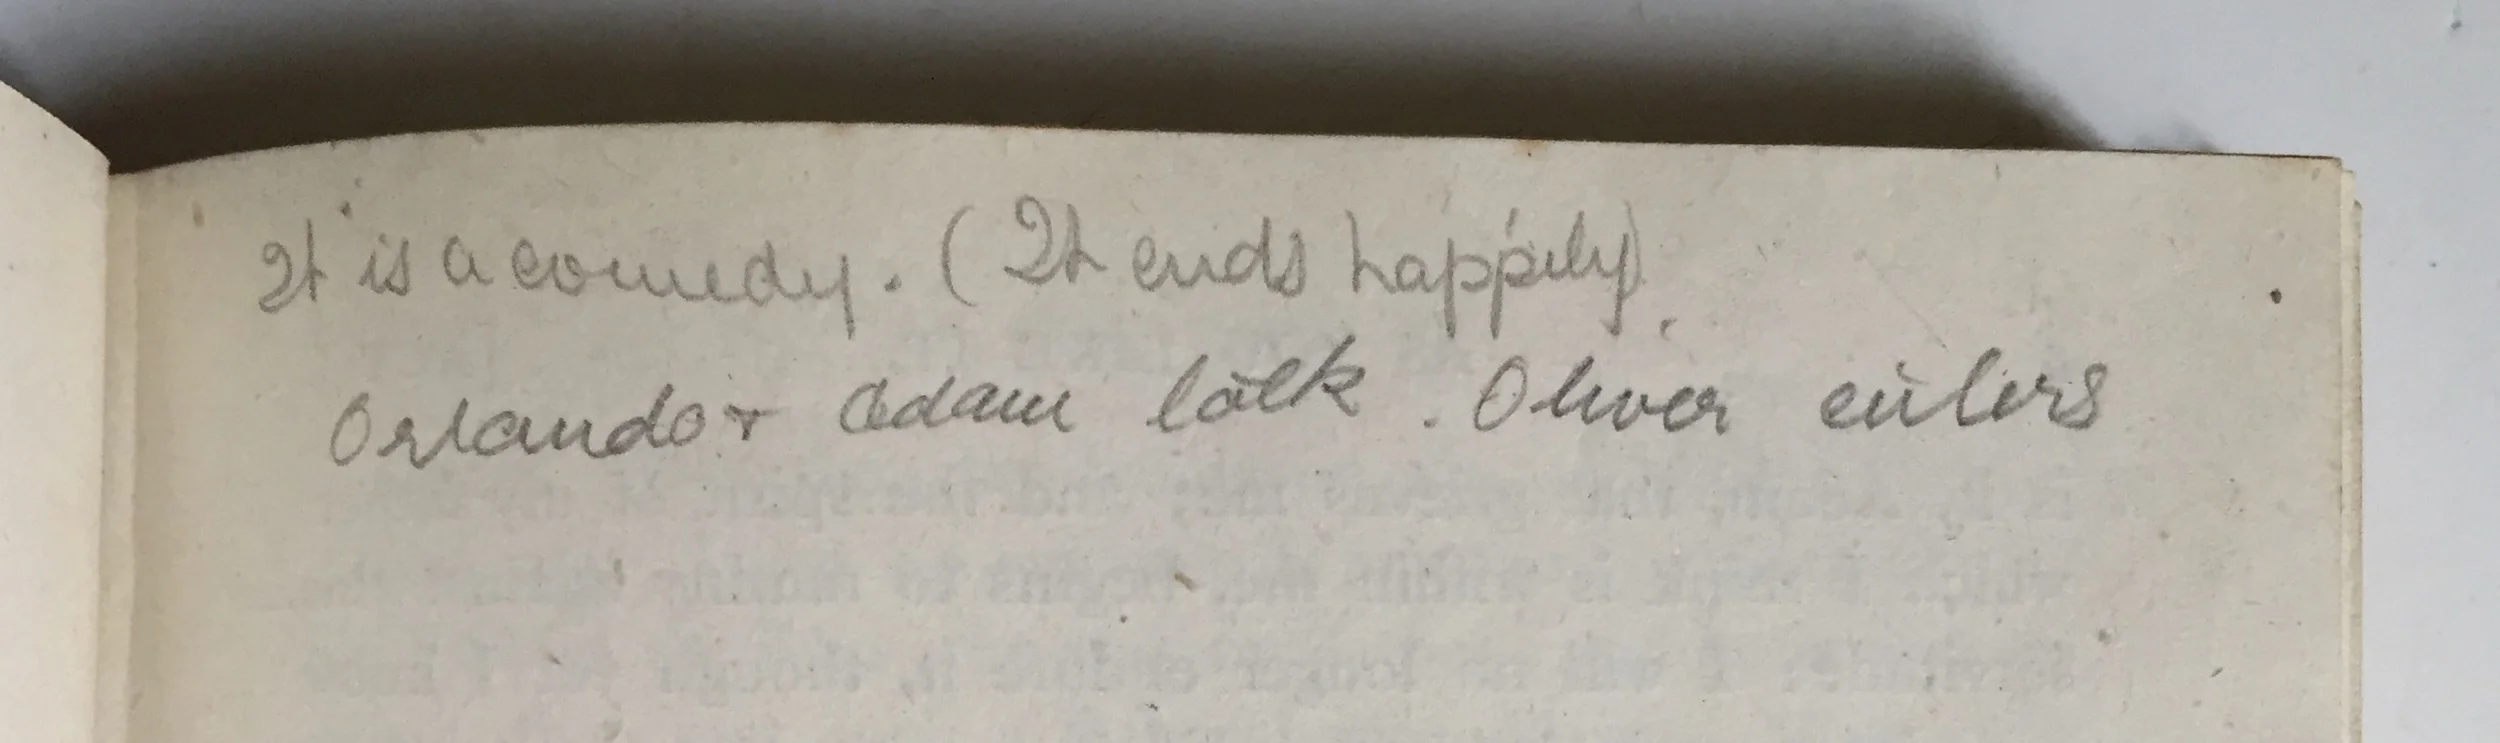 It is a comedy. (It ends happily).
Orlando + Adam talk. Oliver enters